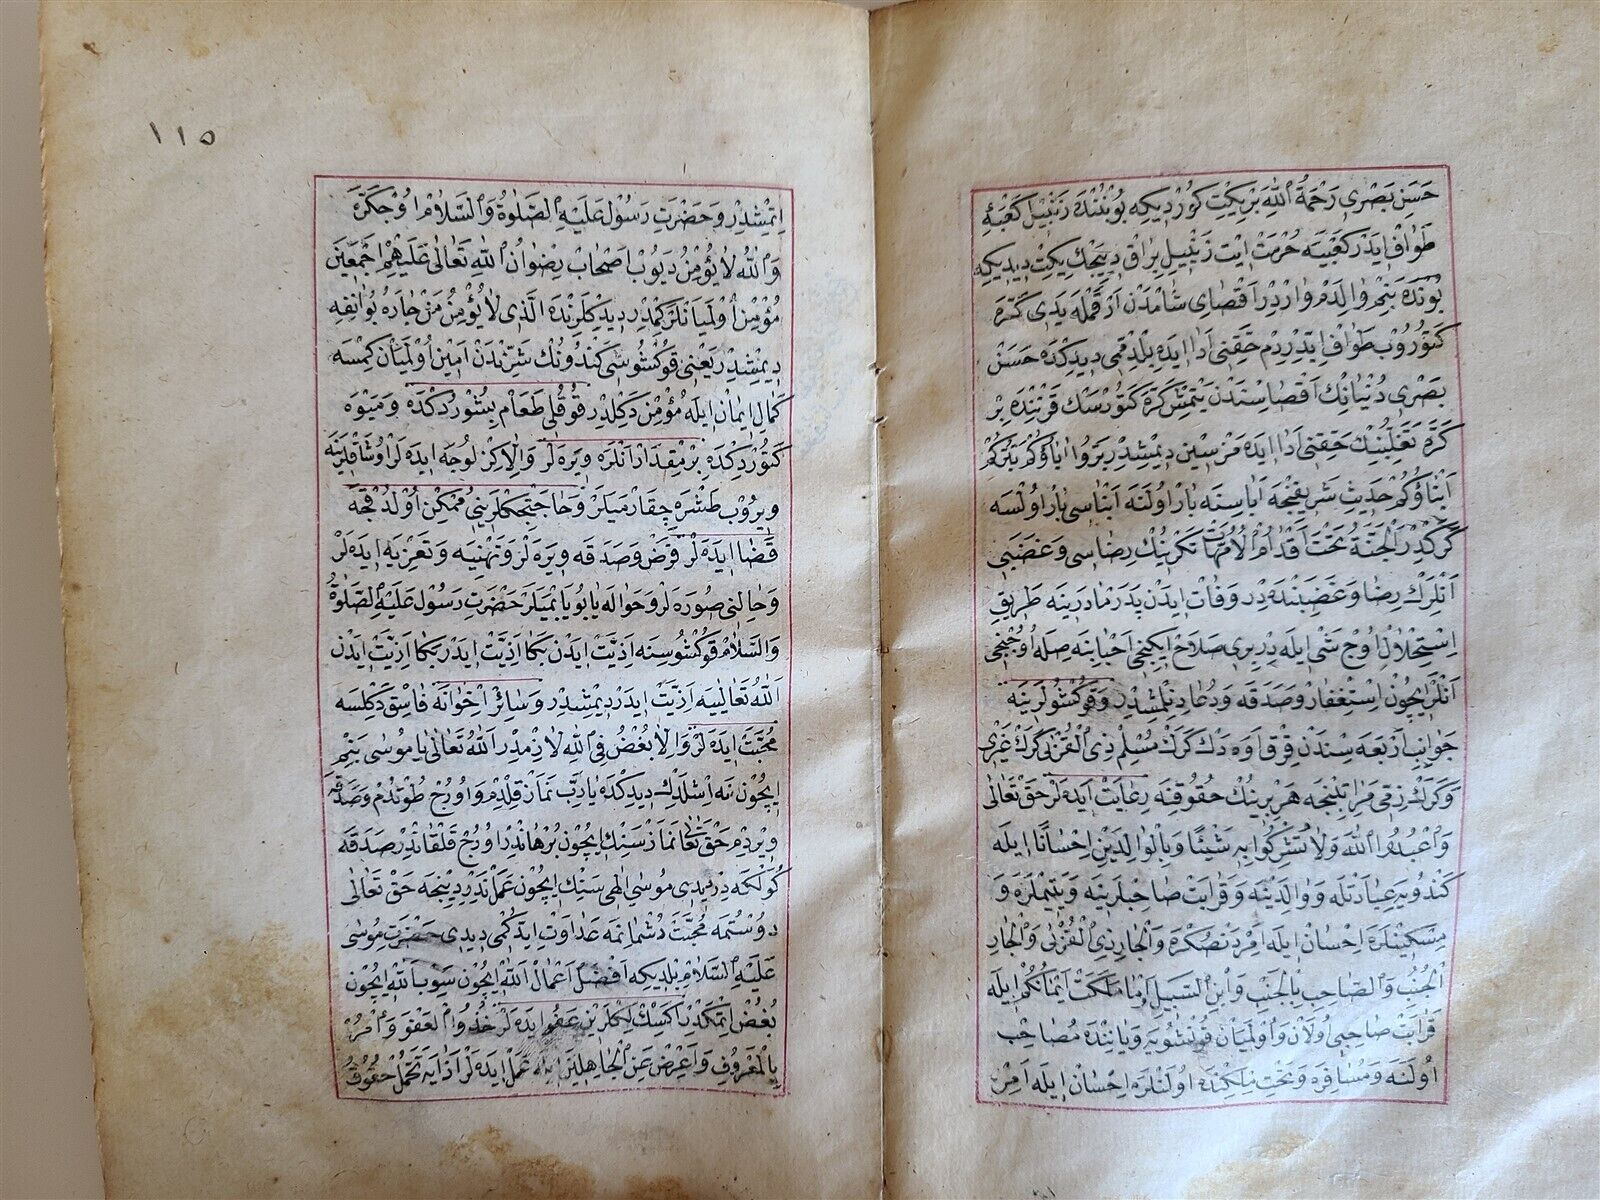 حَسَنْ بَصْرِي رَحْمَةُ اللّٰهِ بَرْيِكِتْ كُورْدِيكِه بُويْنُنْدَه زَنْبِيلْ كَعْبَهٔ
طَوَافْ اِيدَرْ كَعْبَيَه حُرْمَتْ اِيتْ زَنْبِيلِ بِرَاقْ دِيَنْجَكْ يِكِتْ دِيدِيكِه
بُونْدَه بَنِمْ وَالِدَمْ وَارْدِرْ اَقْصَايِ شَامْدَنْ اَرْقَمْلَه يَدِي كَرَّه
كَتُورُوبْ طَوَافْ اِيتْدِرْدِمْ حَقِّنِي اَدَا اِيدَه بِلْدِمْمِي دِيدِكْدَه حَسَنْ
بَصْرِي دُنْيَانِكْ اَقْصَاسِنْدَنْ يَتْمِشْ كَرَّه كَتُورْسَكْ قَرْنِنْدَه بِرْ
كَرَّه تَقَلُّبِنِكْ حَقِّنِي اَدَا اِيدَه مَزْسِينْ دِيمِشْدِرْ بَرُّوا اٰبَاؤُكُمْ يَبَرَّكُمْ
اَبْنَاؤُكُمْ حَدِيثِ شَرِيفِنْجَه اٰبَاسِنَه بَارْ اُولَنَه اَبْنَاسِي بَارْ اُولْسَه
كَرَكْدِرْ اَلْجَنَّةُ تَحْتَ اَقْدَامِ الْاُمَّهَاتْ تَكْرِينِكْ رِضَاسِي وَغَضَبِي
اَنْلَرِكْ رِضَا وَغَضَبِنْدَه دِرْ وَفَاتْ اِيدَنْ پَدَرْ مَادَرِينَه طَرِيقِ
اِسْتِحْلَالْ اُوچْ شَىْ اِيلَه دِرْ بِرِي صَلَاحْ اِيكِنْجِي اَحْبَابِنَه صِلَه اُوچُنْجِي
اَنْلَرْ اِيچُونْ اِسْتِغْفَارْ وَصَدَقَه وَدُعَا دِينِلْمِشْدِرْ وَقُوكْشُولَرِينَه
جَوَانِبِ اَرْبَعَه سِنْدَنْ قِرْقْ اَوَه دَكْ كَرَكْ مُسْلِمْ ذِي الْقُرْبٰى كَرَكْ غَيْرِي
وَكَرَكْ ذِمِّي مَرَاتِبِنْجَه هَرْ بِرِينِكْ حُقُوقِنَه رِعَايَتْ اِيدَه لَرْ حَقْ تَعَالٰى
وَاعْبُدُوا اللّٰهَ وَلَا تُشْرِكُوا بِهِ شَيْئًا وَبِالْوَالِدَيْنِ اِحْسَانًا اِيلَه
كَنْدُويَه عِبَادَتْلَه وَوَالِدَيْنَه وَقَرَابَتْ صَاحِبْلَرِينَه وَيَتِيمْلَرَه وَ
مِسْكِينْلَرَه اِحْسَانْ اِيلَه اَمِرْدَنْ صُكْرَه وَالْجَارِ ذِي الْقُرْبٰى وَالْجَارِ
الْجُنُبِ وَالصَّاحِبِ بِالْجَنْبِ وَابْنِ السَّبِيلِ وَمَا مَلَكَتْ اَيْمَانُكُمْ اِيلَه
قَرَابَتْ صَاحِبِي اُولَانْ وَاُولْمَيَانْ قُوكْشُويَه وَيَانِنْدَه مُصَاحِبْ
اُولَنَه وَمُسَافِرَه وَتَحْتِ مِلْكِنْدَه اُولَنْلَرَه اِحْسَانْ اِيلَه اَمِرْ
١١٥
اِتْمِشْدِرْ وَحَضْرَتِ رَسُولْ عَلَيْهِ الصَّلٰوةُ وَالسَّلَامْ اُوچْ كَرَّه
وَاللّٰهُ لَا يُؤْمِنُ دَيُوبْ اَصْحَابْ رِضْوَانُ اللّٰهِ تَعَالٰى عَلَيْهِمْ اَجْمَعِينَ
مُؤْمِنْ اُولْمَيَانْلَرْ كِمْدِرْ دِيدِكْلَرِنْدَه اَلَّذِي لَا يُؤْمِنُ مَنْ جَارُهُ بَوَائِقِهِ
دِيمِشْدِرْ يَعْنِي قُوكْشُوسِي كَنْدُونُكْ شَرِّنْدَنْ اَمِينْ اُولْمَيَانْ كِمْسَه
كَمَالِ اِيمَانْ اِيلَه مُؤْمِنْ دَكِلْدِرْ قُوقُلِي طَعَامْ پِشُورْدُكْدَه وَمَيْوَه
كَتُورْدِكْدَه بِرْ مِقْدَارْ اَنْلَرَه وِيرَه لَرْ وَاِلَّا كِزْلُوجَه اِيدَه لَرْ اُوشَاقْلَرِينَه
وِيرُوبْ طَشْرَه چِقَارْمَيَلَرْ وَحَاجَتْجِكْلَرِينِي مُمْكِنْ اُولْدُقْجَه
قَضَا اِيدَه لَرْ قَرْضْ وَصَدَقَه وِيرَه لَرْ وَتَهْنِيَه وَتَعْزِيَه اِيدَه لَرْ
وَحَالِنِي صُورَه لَرْ وَحَوَالَه يَاپُو يَاپْمَيَلَرْ حَضْرَتِ رَسُولْ عَلَيْهِ الصَّلٰوةُ
وَالسَّلَامْ قُوكْشُوسِنَه اَذِيَّتْ اِيدَنْ بَكَا اَذِيَّتْ اِيدَرْ بَكَا اَذِيَّتْ اِيدَنْ
اَللّٰهُ تَعَالٰييَه اَذِيَّتْ اِيدَرْ دِيمِشْدِرْ وَسَائِرْ اِخْوَانَه فَاسِقْ دَكِلْسَه
مُحَبَّتْ اِيدَه لَرْ وَاِلَّا بُغْضْ فِي اللّٰهِ لَازِمْدِرْ اَللّٰهُ تَعَالٰى يَا مُوسٰى بَنِمْ
اِيچُونْ نَه اِشْلَدِكْ دِيدِكْدَه يَا رَبِّ نَمَازْ قِلْدِمْ وَاُورُجْ طُوتْدُمْ وَصَدَقَه
وِيرْدِمْ حَقْ تَعَالٰى نَمَازْ سَنِكْ اِيچُونْ بُرْهَانْدِرْ اُورُجْ قَلْقَانْدِرْ صَدَقَه
كُولْكَه دِرْ دِيدِي مُوسٰى اِلٰهِي سَنِكْ اِيچُونْ عَمَلْ نَدِرْ دِيينْجَه حَقْ تَعَالٰى
دُوسْتُمَه مُحَبَّتْ دُشْمَانِمَه عَدَاوَتْ اِيتْدِكْمِي دِيدِي حَضْرَتِ مُوسٰى
عَلَيْهِ السَّلَامْ بِلْدِيكِه اَفْضَلِ اَعْمَالْ اَللّٰهْ اِيچُونْ سَوُبْ اَللّٰهْ اِيچُونْ
بُغْضْ اِتْمَكْدِرْ اَكْسِكْلِكْلَرِينْ عَفْوْ اِيدَه لَرْ خُذِ الْعَفْوَ وَأْمُرْ
بِالْمَعْرُوفِ وَاَعْرِضْ عَنِ الْجَاهِلِينَ اِيلَه عَمَلْ اِيدَه لَرْ اَذَايَه تَحَمُّلْ حُقُوقُ